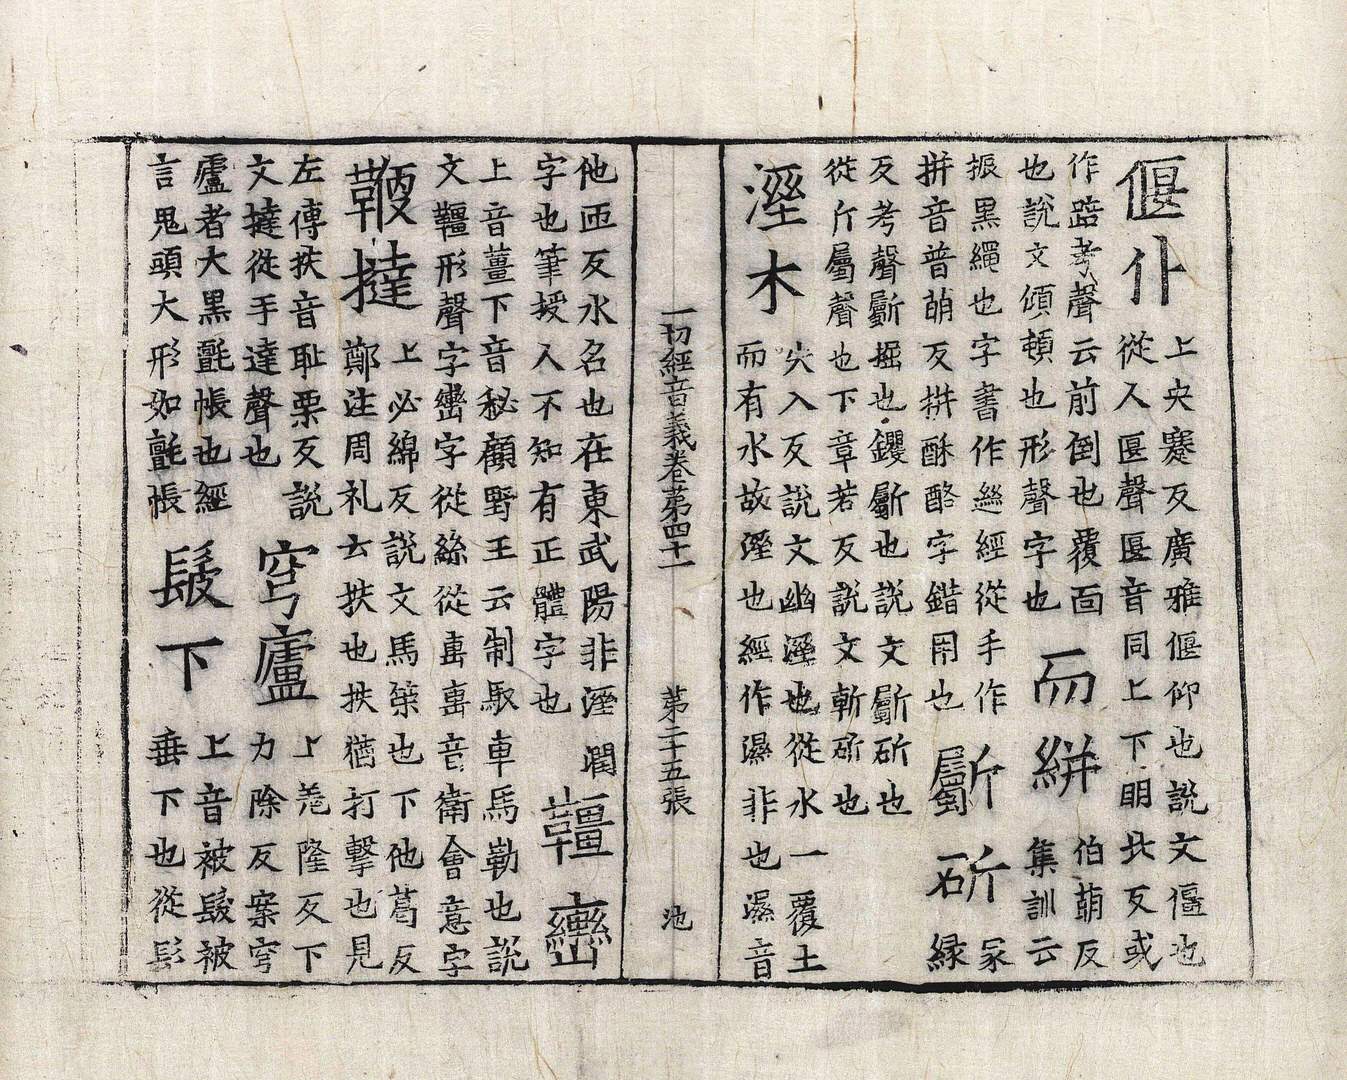 偃仆
上央蹇反廣雅偃仰也說文偃也
從人匽聲匽音同上下朋北反或
作踣考聲云前倒也覆面
也說文傾頓也形聲字也
而絣
伯萌反
集訓云
振黑繩也字書作 經從手作
拼音普萌反拼酥酪字錯用也
斸斫
冢
緑
反考聲斸掘也钁斸也說文斸斫也
從斤屬聲也下章若反說文斬斫也
溼木
尖入反說文幽溼也從水一覆土
而有水故溼也經作濕非也濕音
一切經音義卷第四十一 第二十五張 池
他匝反水名也在東武陽非溼潤
字也筆授人不知有正體字也
韁轡
上音薑下音秘顧野王云制馭車馬勒也說
文韁形聲字轡字從絲從軎軎音衛會意字
鞭撻
上必綿反說文馬 也下他葛反
鄭注周礼云扶也扶猶打擊也見
左傳扶音耻栗反說
文撻從手達聲也
穹廬
上羌隆反下
力除反案穹
廬者大黑氈帳也經
言鬼頭大形如氈帳
髲下
上音被髲被
垂下也從髟